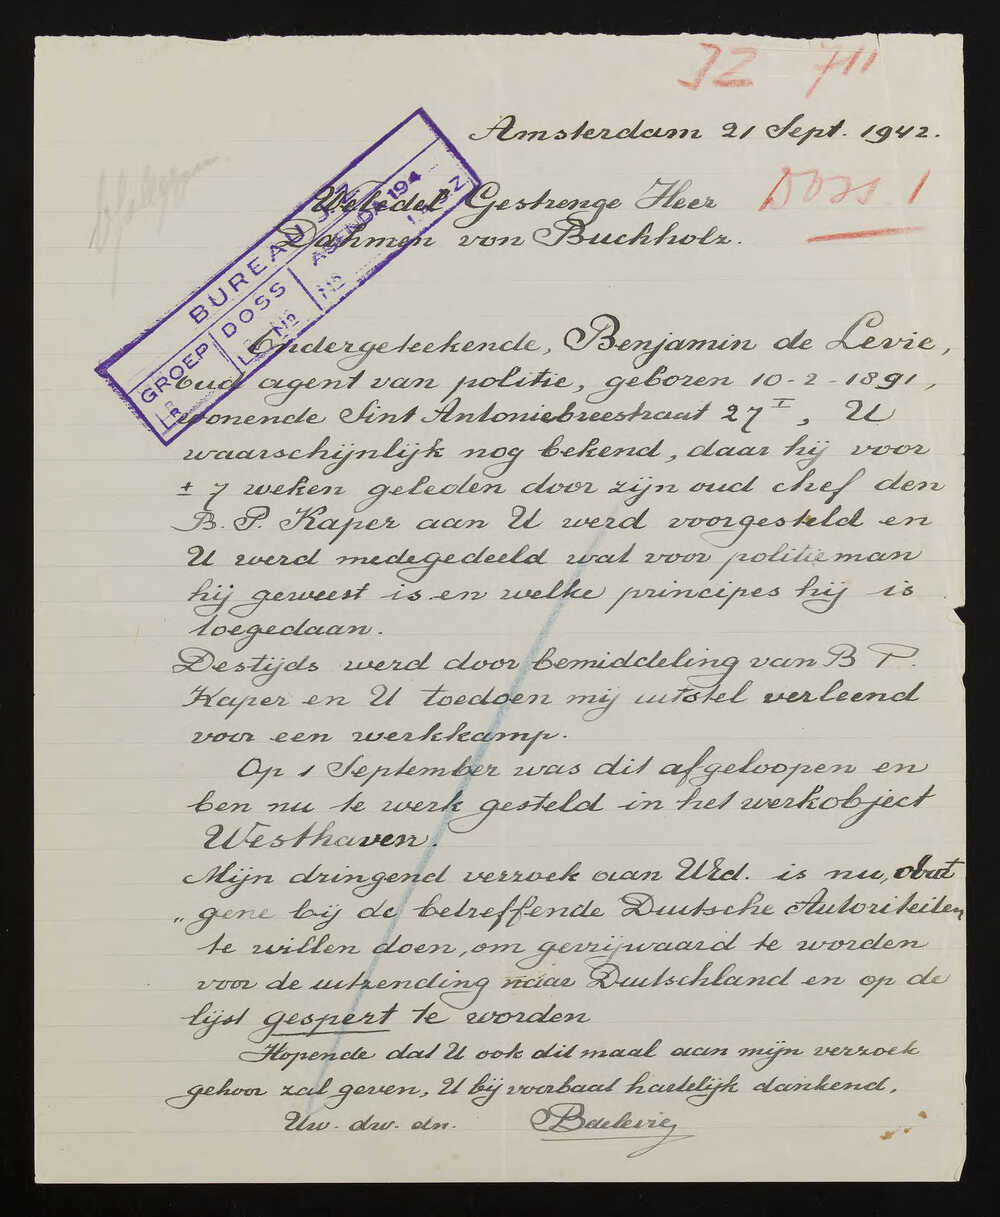 JZ 711
Amsterdam 21 Sept. 1942.
Doss 1
Weledel Gestrenge Heer
Dahmen von Buchholz.
BUREAU J.Z.
GROEP DOSS AGENDA 194
LR No No
Ondergeteekende, Benjamin de Levie,
oud agent van politie, geboren 10-2-1891,
wonende Sint Antoniebreestraat 27 I, U
waarschijnlijk nog bekend, daar hij voor
± 7 weken geleden door zijn oud chef den
B. P. Kaper aan U werd voorgesteld en
U werd medegedeeld wat voor politieman
hij geweest is en welke principes hij is
toegedaan.
Destijds werd door bemiddeling van B P.
Kaper en U toedoen mij uitstel verleend
voor een werkkamp.
Op 1 September was dit afgeloopen en
ben nu te werk gesteld in het werkobject
Westhaven.
Mijn dringend verzoek aan UEd. is nu, dat
gene bij de betreffende Duitsche Autoriteiten
te willen doen, om gevrijwaard te worden
voor de uitzending naar Duitschland en op de
lijst gespert te worden
Hopende dat U ook dit maal aan mijn verzoek
gehoor zal geven, U bij voorbaat hartelijk dankend,
Uw. dw. dn. Bdelevie